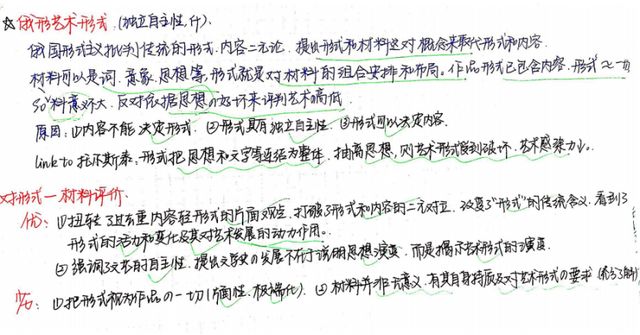 ☆俄形艺术形式.(独立自主性.作)
俄国形式主义批判传统的形式.内容二元论.提出形式和材料这对概念来取代形式和内容.
材料可以是词.意象.思想等.形式就是对材料的组合安排和布局.作品形式已包含内容.形式≈一切
so"料意义不大.反对依据思想の好坏来评判艺术高低.
原因:①内容不能决定形式.②形式具有独立自主性.③形式可以决定内容.
link to 托尔斯泰:形式把思想和文字等连结为整体.抽离思想,则艺术形式受到破坏.艺术感染力↓.
对形式一材料评价.
优:①扭转了过去重内容轻形式的片面观点.打破了形式和内容的二元对立.改变了"形式"的传统含义.看到了
形式的活力和变化及其对艺术发展的动力作用.
②强调了文艺的自主性.提出文学史の发展不在于说明思想演变.而是揭示艺术形式的演变.
①把形式视为作品の一切(片面性.极端化).②材料并非无意义.有其自身特质及对艺术形式の要求